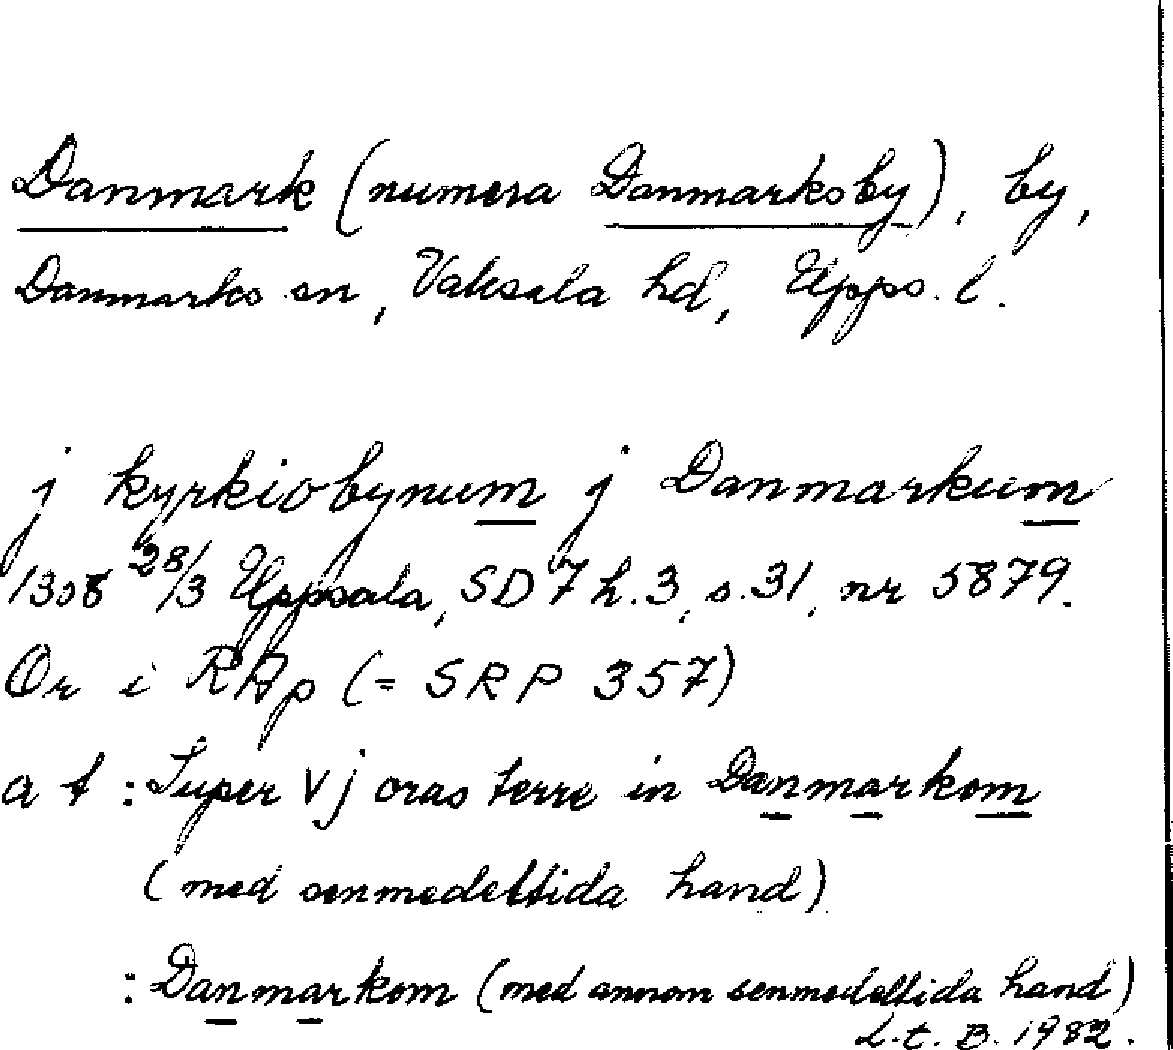 Danmark (numera Danmarksby), by,
Danmarks sn, Vaksala hd, Upps. l.
j kyrkiobynum j Danmarkum
1358 28/3 Uppsala, SD 7 h.3, s.31, nr 5879.
Or i RAp (= SRP 357)
a t : Super vj oras terre in Danmarkom
(med senmedeltida hand)
: Danmarkom (med annan senmedeltida hand)
L.t. B. 1982.